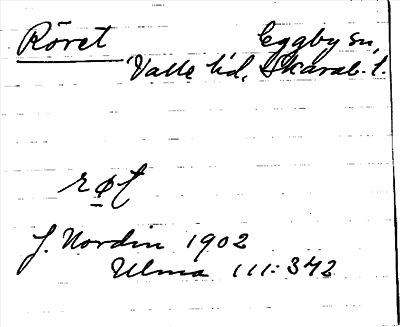 Röret Eggby sn,
Valle hd, Skarab. l.
røt
J. Nordin 1902
Ulma 111:342